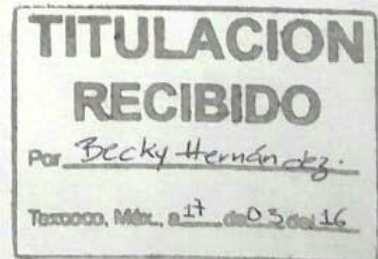 TITULACION
RECIBIDO
Por Becky Hernández.
Texcoco, Méx., a 17 de 03 del 16